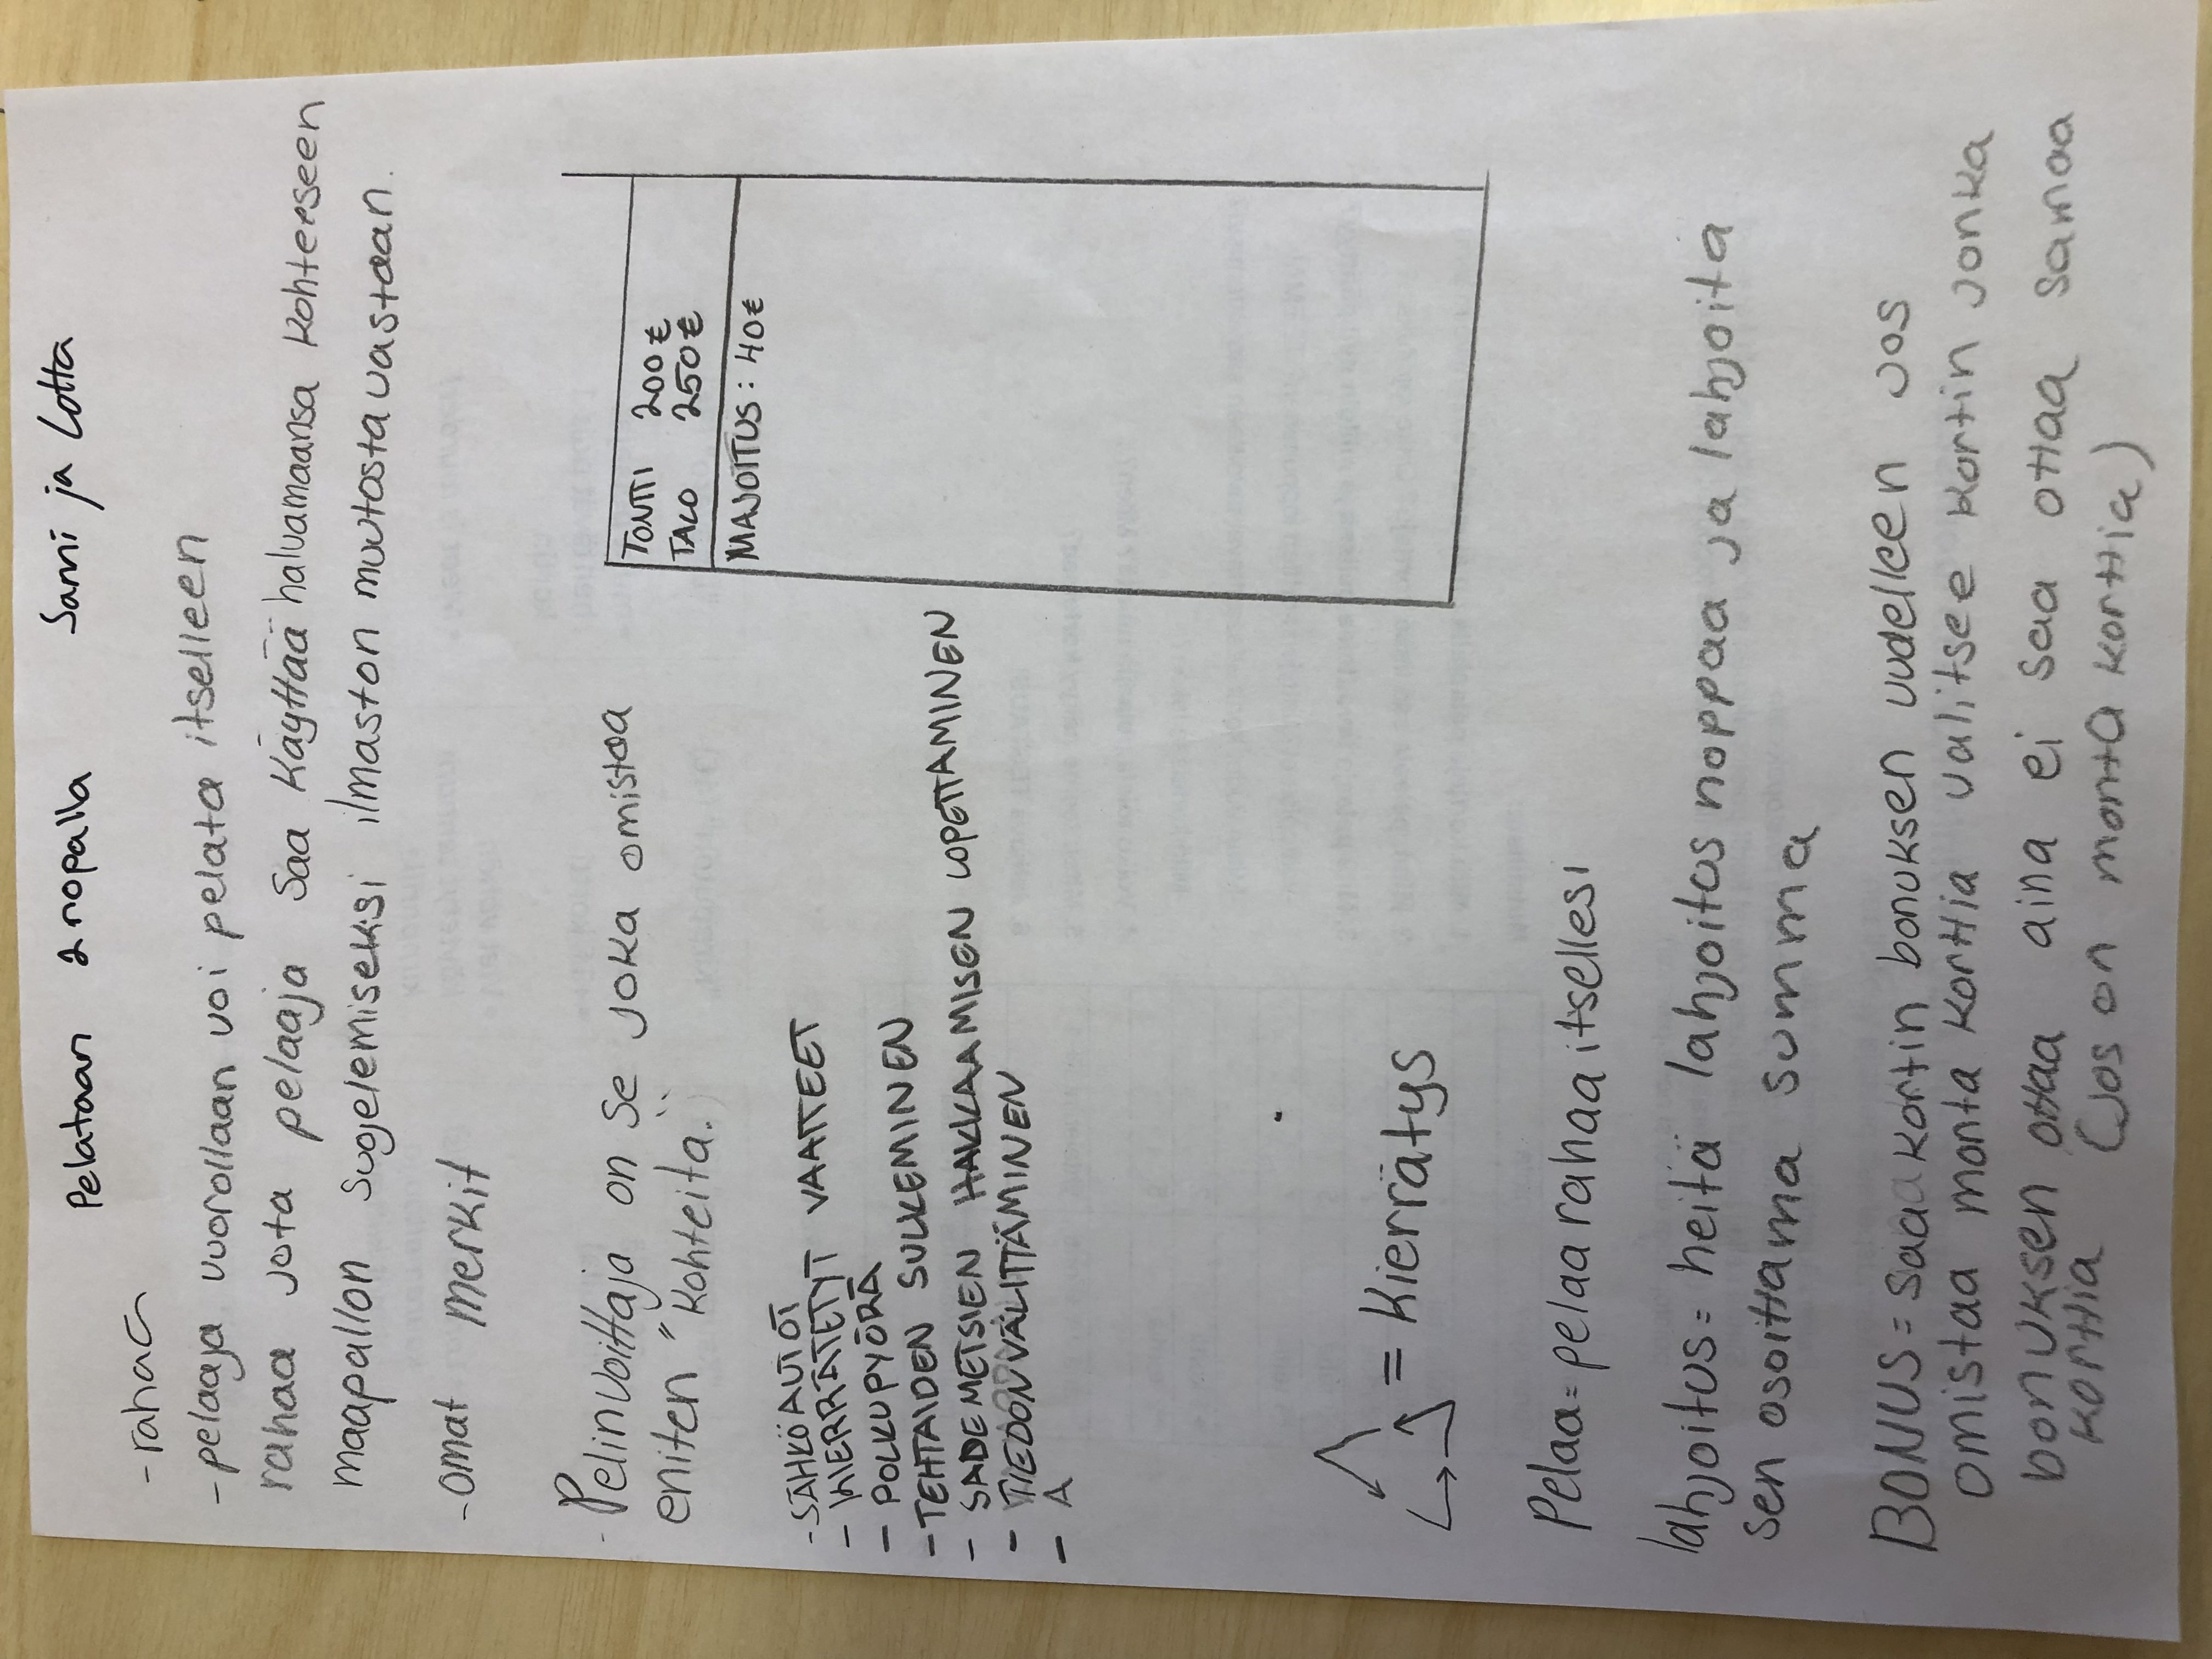 Pelataan 2 nopalla Sanni ja Lotta
- rahaa
- pelaaja vuorollaan voi pelata itselleen
rahaa jota pelaaja saa käyttää haluamaansa kohteeseen
maapallon suojelemiseksi ilmaston muutosta vastaan.
- omat merkit
- Pelin voittaja on se joka omistaa
eniten "kohteita."
TONTTI 200€
TALO 250€
MAJOITUS: 40€
- SÄHKÖAUTOT
- KIERRÄTETYT VAATTEET
- POLKUPYÖRÄ
- TEHTAIDEN SULKEMINEN
- SADEMETSIEN HAKKAAMISEN LOPETTAMINEN
- TIEDONVÄLITTÄMINEN
- A
= Kierrätys
Pelaa= pelaa rahaa itsellesi
lahjoitus= heitä lahjoitus noppaa ja lahjoita
sen osoittama summa
BONUS= saa kortin bonuksen uudelleen jos
omistaa monta korttia valitsee kortin jonka
bonuksen ottaa aina ei saa ottaa samaa
korttia (jos on monta korttia)